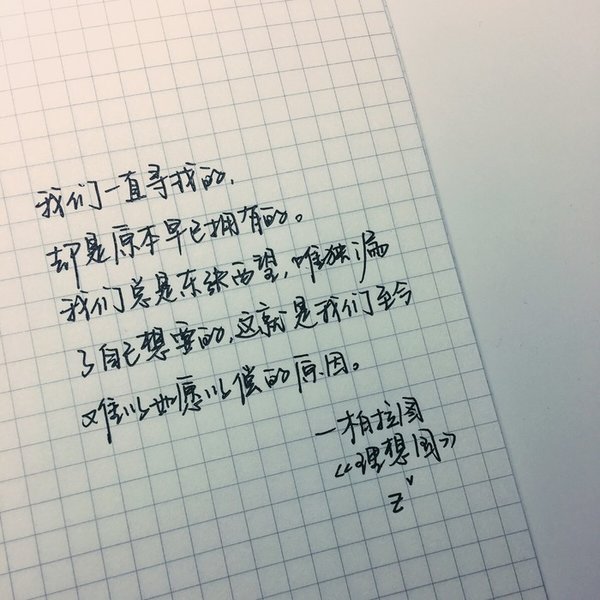 我们一直寻找的，
却是原本早已拥有的。
我们总是东张西望，唯独漏
了自己想要的，这就是我们至今
难以如愿以偿的原因。
—柏拉图
《理想国》
Z